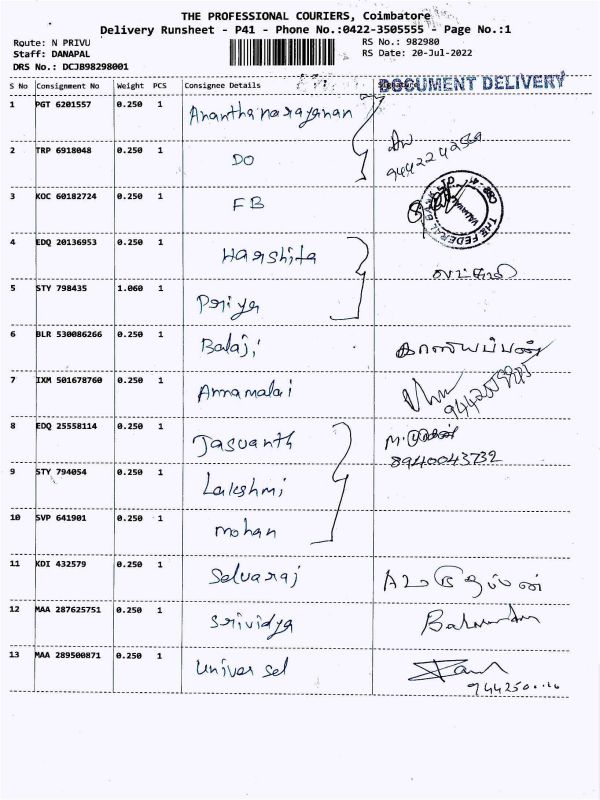 THE PROFESSIONAL COURIERS, Coimbatore
Delivery Runsheet - P41 - Phone No.:0422-3505555 - Page No.:1
Route: N PRIVU
RS No.: 982980
Staff: DANAPAL
RS Date: 20-Jul-2022
DRS No.: DCJB98298001
S No Consignment No Weight PCS Consignee Details
DOCUMENT DELIVERY
1 PGT 6201557 0.250 1 Ananthanarayanan
2 TRP 6918048 0.250 1 DO
3 KOC 60182724 0.250 1 FB
THE FEDERAL BANK LTD
4 EDQ 20136953 0.250 1 Harshita
5 STY 798435 1.060 1 Priya
6 BLR 530086266 0.250 1 Balaji காளியப்பன்
7 IXM 501678760 0.250 1 Annamalai
8 EDQ 25558114 0.250 1 Jasvanth
8940043732
9 STY 794054 0.250 1 Lakshmi
10 SVP 641901 0.250 1 mohan
11 KDI 432579 0.250 1 Selvaraj
12 MAA 287625751 0.250 1 Srividya
13 MAA 289500871 0.250 1 Univer sel